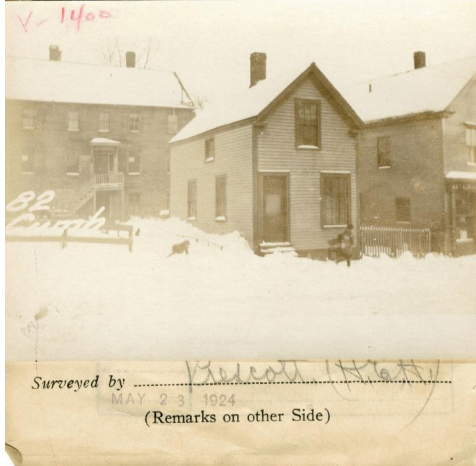 V-1400
82
Cumb
Surveyed by Prescott (H&H)
MAY 23 1924
(Remarks on other Side)